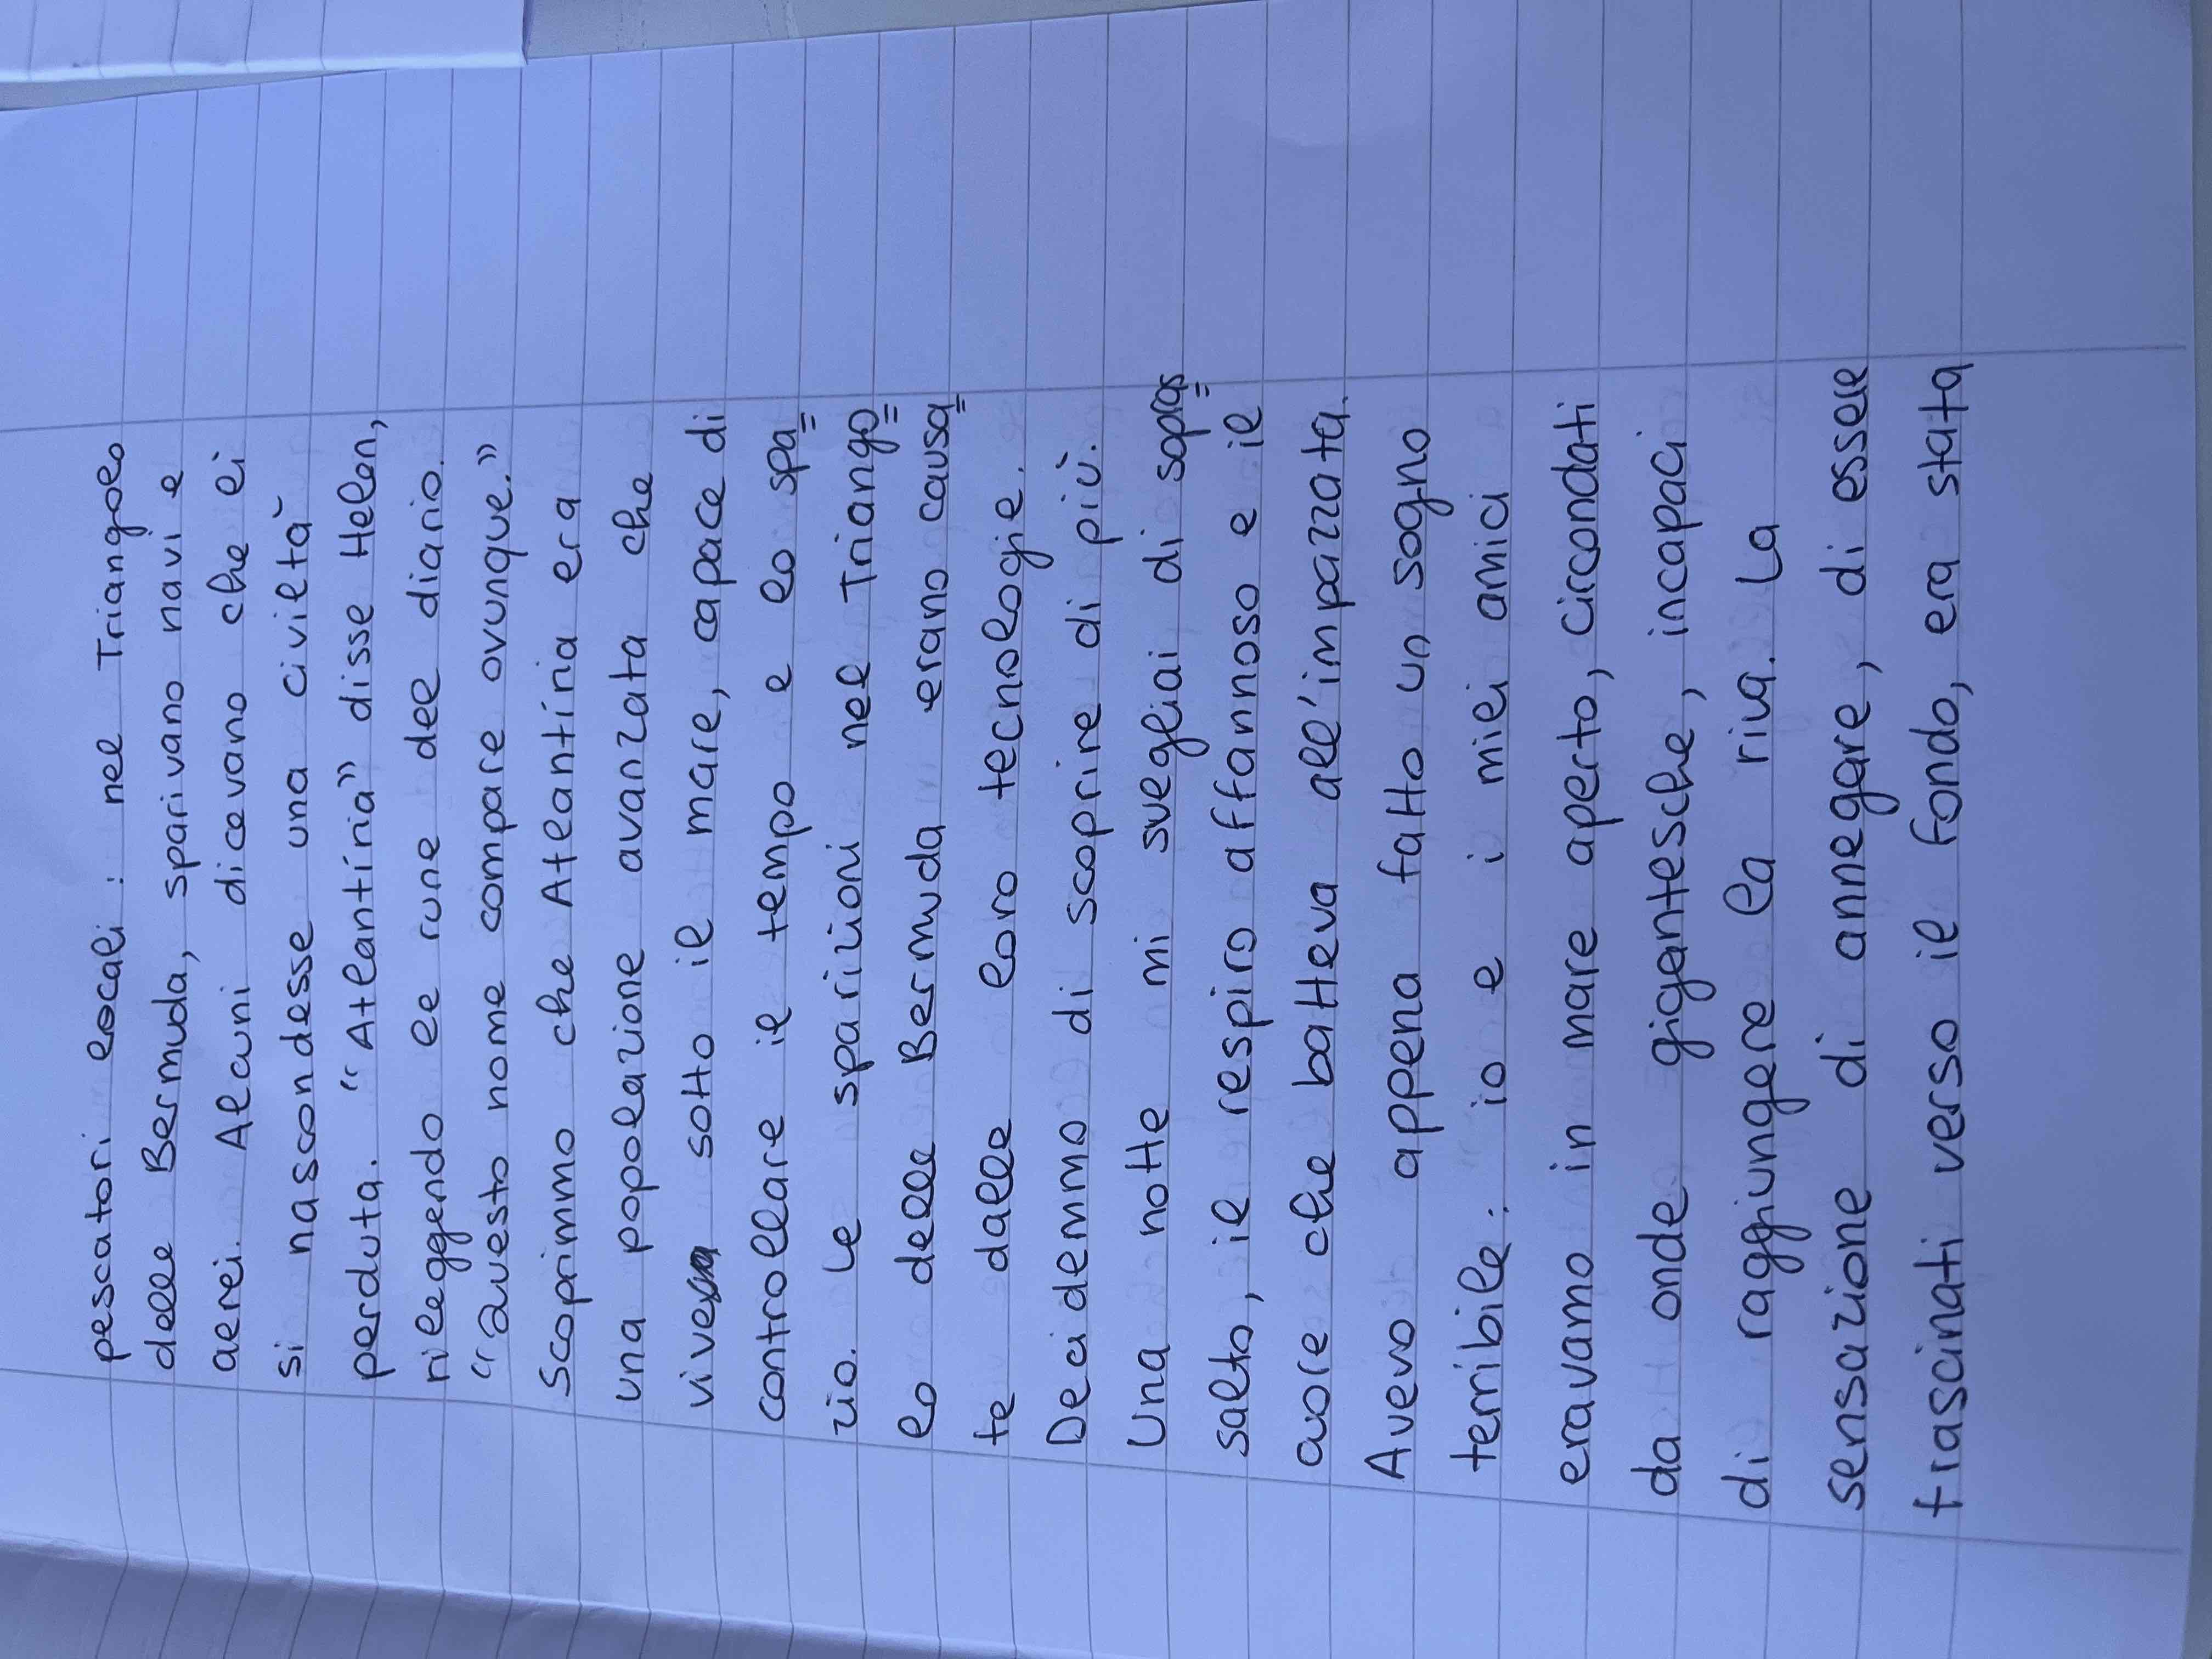 pescatori locali : nel Triangolo
delle Bermuda, sparivano navi e
aerei. Alcuni dicevano che li
si nascondesse una civiltà
perduta. "Atlantíria" disse Helen,
rileggendo le rune del diario.
"Questo nome compare ovunque."
Scoprimmo che Atlantíria era
una popolazione avanzata che
viveva sotto il mare, capace di
controllare il tempo e lo spa=
zio. Le sparizioni nel Triango=
lo delle Bermuda erano causa=
te dalle loro tecnologie.
Decidemmo di scoprire di più.
Una notte mi svegliai di sopras=
salto, il respiro affannoso e il
cuore che batteva all'impazzata.
Avevo appena fatto un sogno
terribile: io e i miei amici
eravamo in mare aperto, circondati
da onde gigantesche, incapaci
di raggiungere la riva. La
sensazione di annegare, di essere
trascinati verso il fondo, era stata